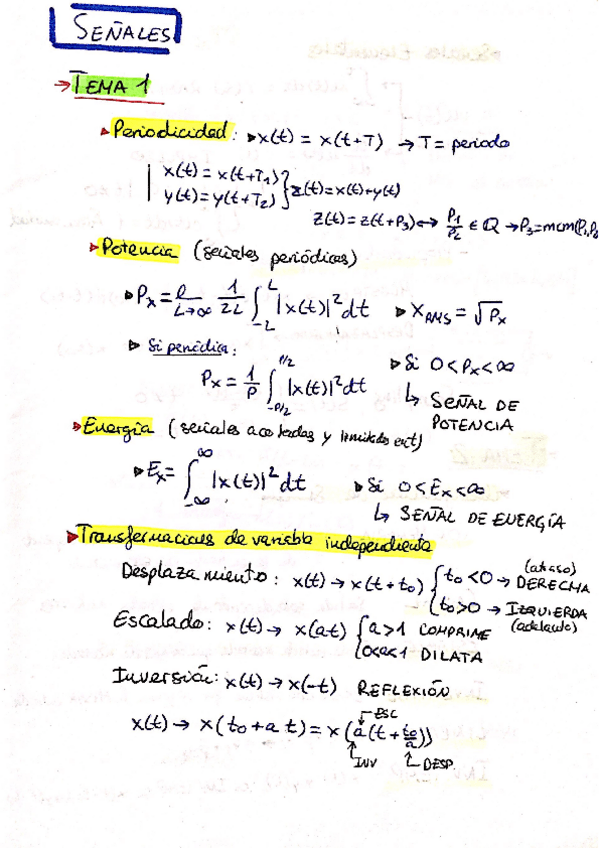 SEÑALES
→ TEMA 1
▸ Periodicidad: ▸ x(t) = x(t+T) → T = periodo
x(t) = x(t+T₁)
y(t) = y(t+T₂) } z(t) = x(t)+y(t)
z(t) = z(t+P₃) ↔ P₁/P₂ ∈ Q → P₃=mcm(P₁,P₂
▸ Potencia (señales periódicas)
▸ Pₓ = l L→∞ 1/2L ∫_{-L}^{L} |x(t)|² dt ▸ X_RMS = √Pₓ
▸ Si periódica: ▸ Si 0<Pₓ<∞
Pₓ = 1/P ∫_{-P/2}^{P/2} |x(t)|² dt ↳ SEÑAL DE
POTENCIA
▸ Energía (señales acotadas y limitadas en t)
▸ Eₓ = ∫_{-∞}^{∞} |x(t)|² dt ▸ Si 0<Eₓ<∞
↳ SEÑAL DE ENERGÍA
▸ Transformaciones de variable independiente
(atraso)
Desplazamiento: x(t) → x(t+t₀) { t₀<0 → DERECHA
t₀>0 → IZQUIERDA
(adelanto)
Escalado: x(t) → x(at) { a>1 COMPRIME
0<a<1 DILATA
Inversión: x(t) → x(-t) REFLEXIÓN
ESC
x(t) → x(t₀+a t) = x(a(t+t₀/a))
INV DESP.